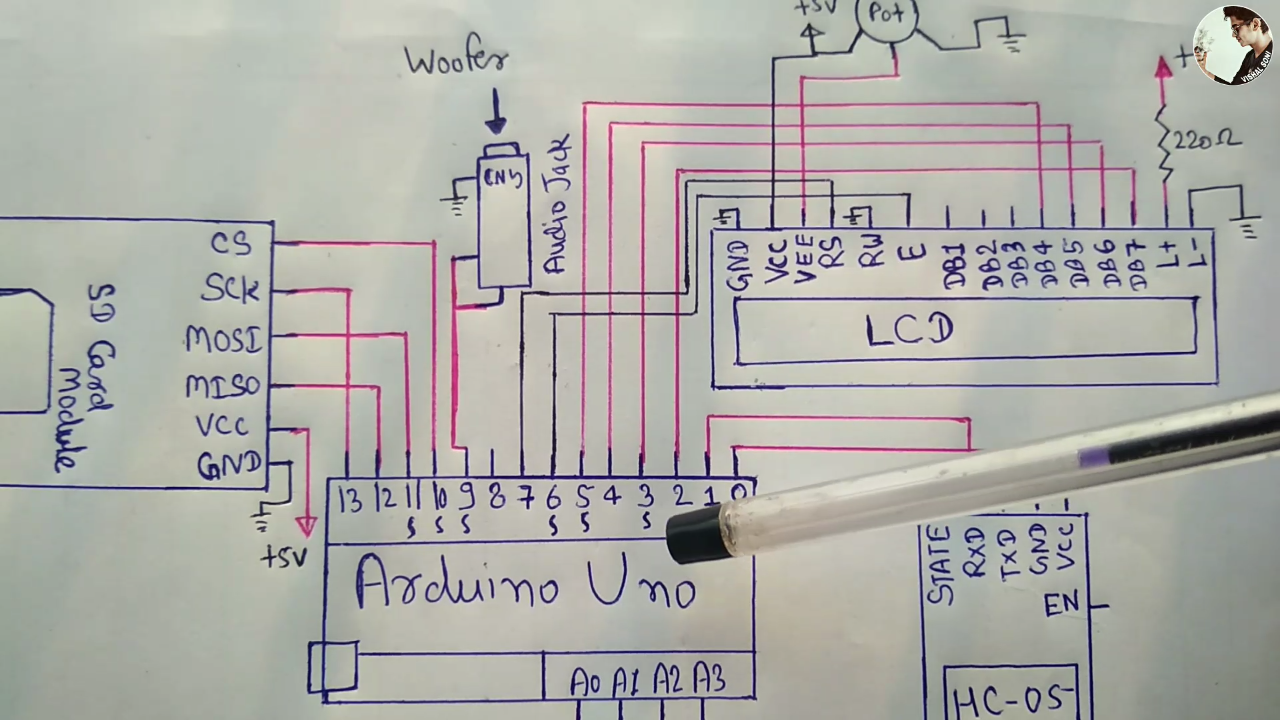 +5V
Pot
Woofer
+
VISHAL SONI
220Ω
Audio Jack
CS
SCK
MOSI
MISO
VCC
GND
SD Card
Module
+5V
GND
VCC
VEE
RS
RW
E
DB1
DB2
DB3
DB4
DB5
DB6
DB7
L+
L-
LCD
13 12 11 10 9 8 7 6 5 4 3 2 1 0
S S S S S S
Arduino Uno
A0 A1 A2 A3
STATE
RXD
TXD
GND
VCC
EN
HC-05